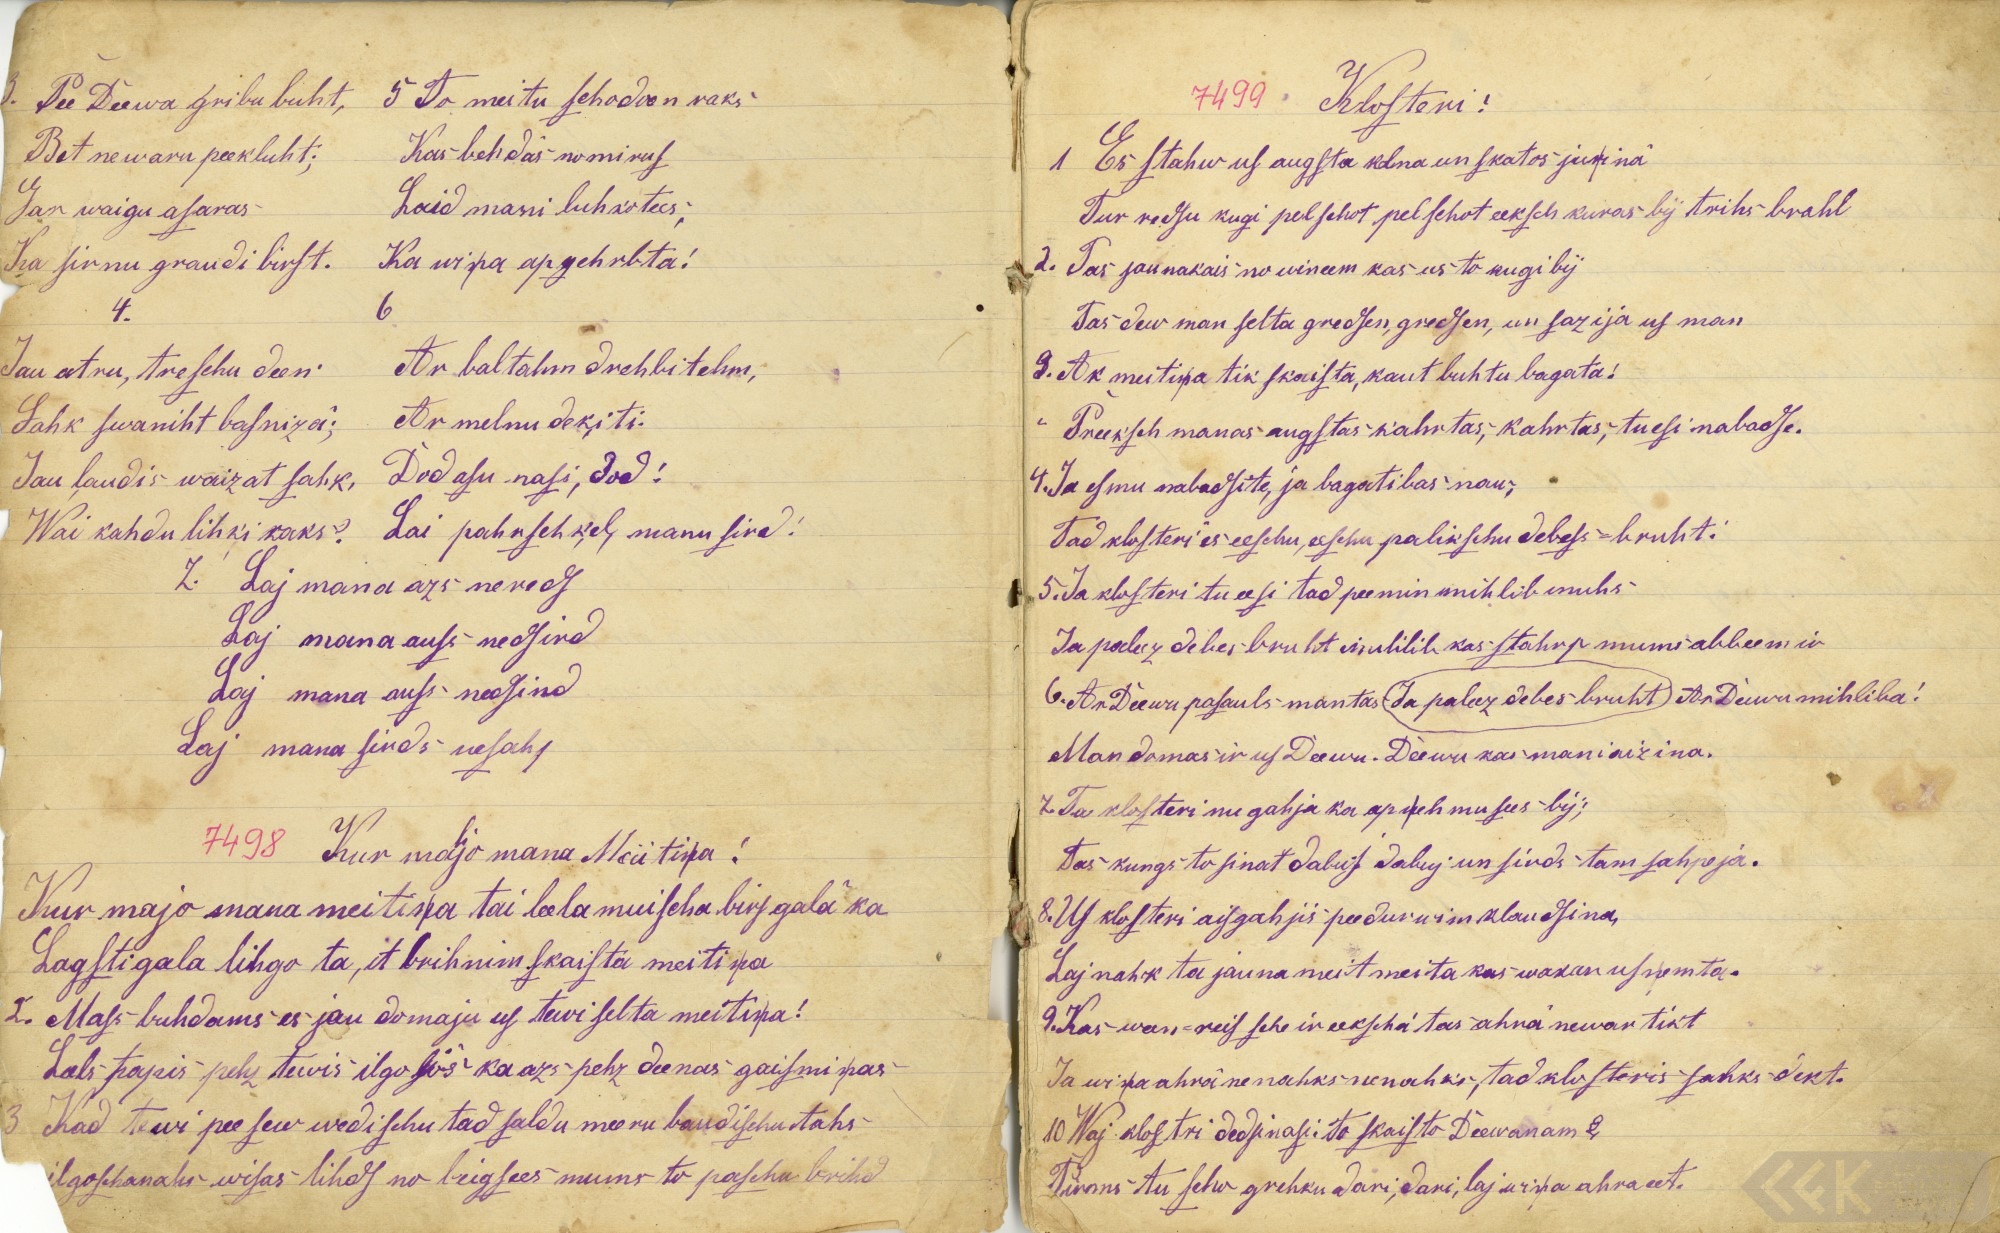 3. Pee Deewa gribu buht,
Bet newaru peekluht;
Gar waigu asaras
Ka sirnu graudi birst.
4.
Jau otru, treschu deen
Sahk swaniht basnizâ;
Jau ļaudis waizat sahk,
Wai kahdu lihķi raks?
5 To meitu schodeen raks
Kas behdâs nomirus
Laid mani luhkotees,
Ka wiņa apgehrbta!
6
Ar baltahm drehbitehm,
Ar melnu deķiti.
Dod asu nasi, dod!
Lai pahrschķeļ manu sird!
7. Laj mana azs neredz
Laj mana auss nedsird
Laj mana auss nedsird
Laj mana sirds nesahp
7498 Kur majo mana Meitiņa!
Kur majo mana meitiņa tai leela muischa birsgalâ ka
Lagstigala lihgo ta, it brihnim skaista meitiņa
2. Mass buhdams es jau domaju us tewi selta meitiņa!
Leels tapis pehz tewis ilgojôs ka azs pehz deenas gaismiņas
3 Kad tewi pee sew wedischu tad saldu meeru baudischu tahs
ilgoschanahs wisas lihds no beigsees mums to paschu brihd
7499 Klosteri!
1 Es stahw us augsta kalna un skatos juŗinâ
Tur redsu kugi pelschot pelschot eeksch kuras bij trihs brahl
2. Tas jaunakais no wineem kas us to kugi bij
Tas dew man selta gredsen, gredsen, un sazija us man
3. Ak meitiņa tik skaista, kaut buhtu bagata!
" Preeksch manas augstas kahrtas, kahrtas, tu esi nabadse.
4. Ja esmu nabadsite, ja bagatibas nau,
Tad klosterî es eeschu, eeschu palikschu debess=bruht!
5. Ja klosteri tu eesi tad peemin mihlib muhs
Ja paleez debes bruht mihlib kas stahrp mums abbeem ir
6. Ar Deewu pasauls mantas (Ja paleez debes bruht) Ar Deewu mihliba!
Man domas ir us Deewu. Deewu kas mani aizina.
7. Ta klosteri nu gahja ka apņehmusees bij;
Tas kungs to sinat dabuj dabuj un sirds tam sahpeja.
8. Us klosteri aisgahjis pee durwim klaudsina,
Laj nahk ta jauna meit meita kas wakar usņemta.
9. Kas wan=reis sche ir eekschâ tas ahrâ newar tikt
Ja wiņa ahrâ nenahks nenahks, tad klosteris sahks dekt.
10 Waj klostri dedsinasi to skaisto Deewanam?
Pirms tu schw grehku dari, dari, laj wiņa ahra eet.